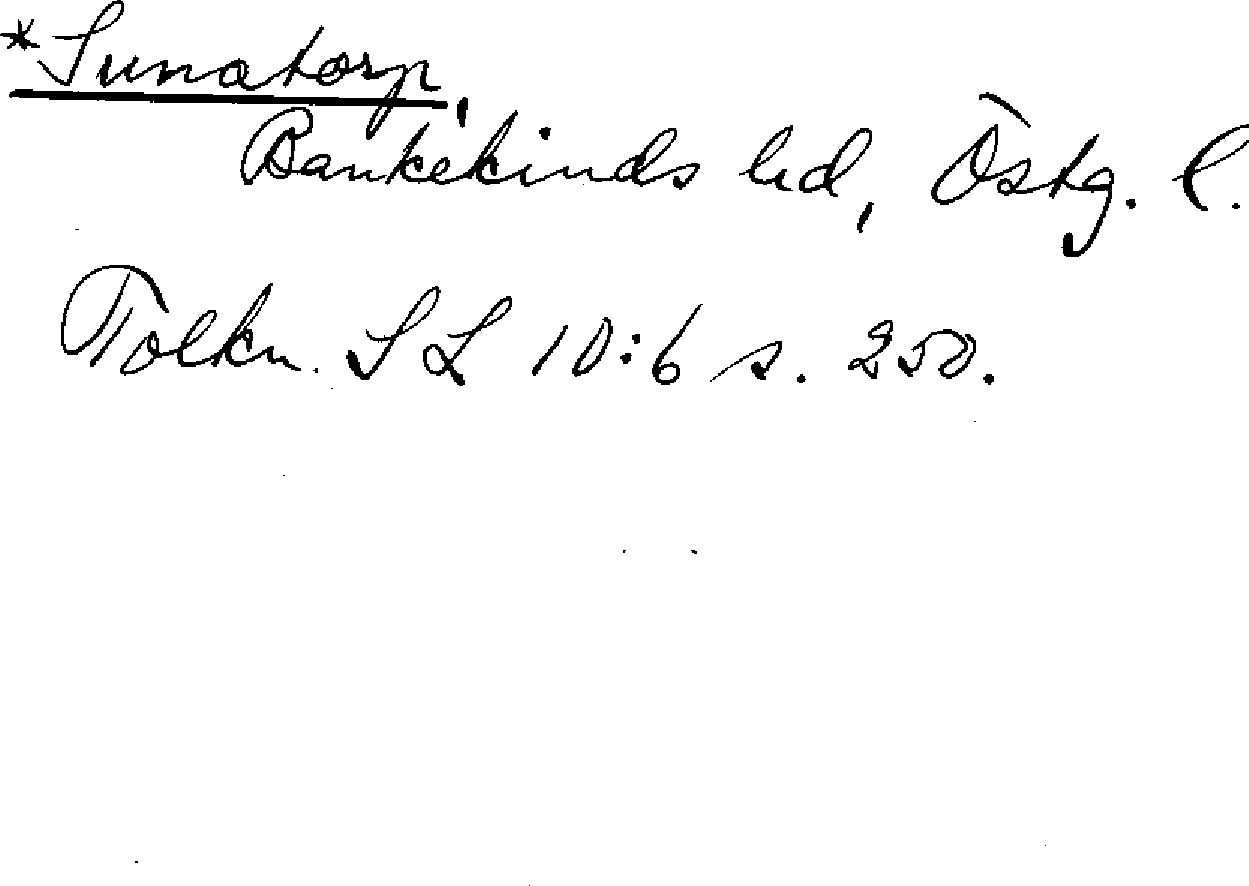 *Sunatorp,
Bankekinds hd, Östg. l.
Tolkn. SL 10:6 s. 250.